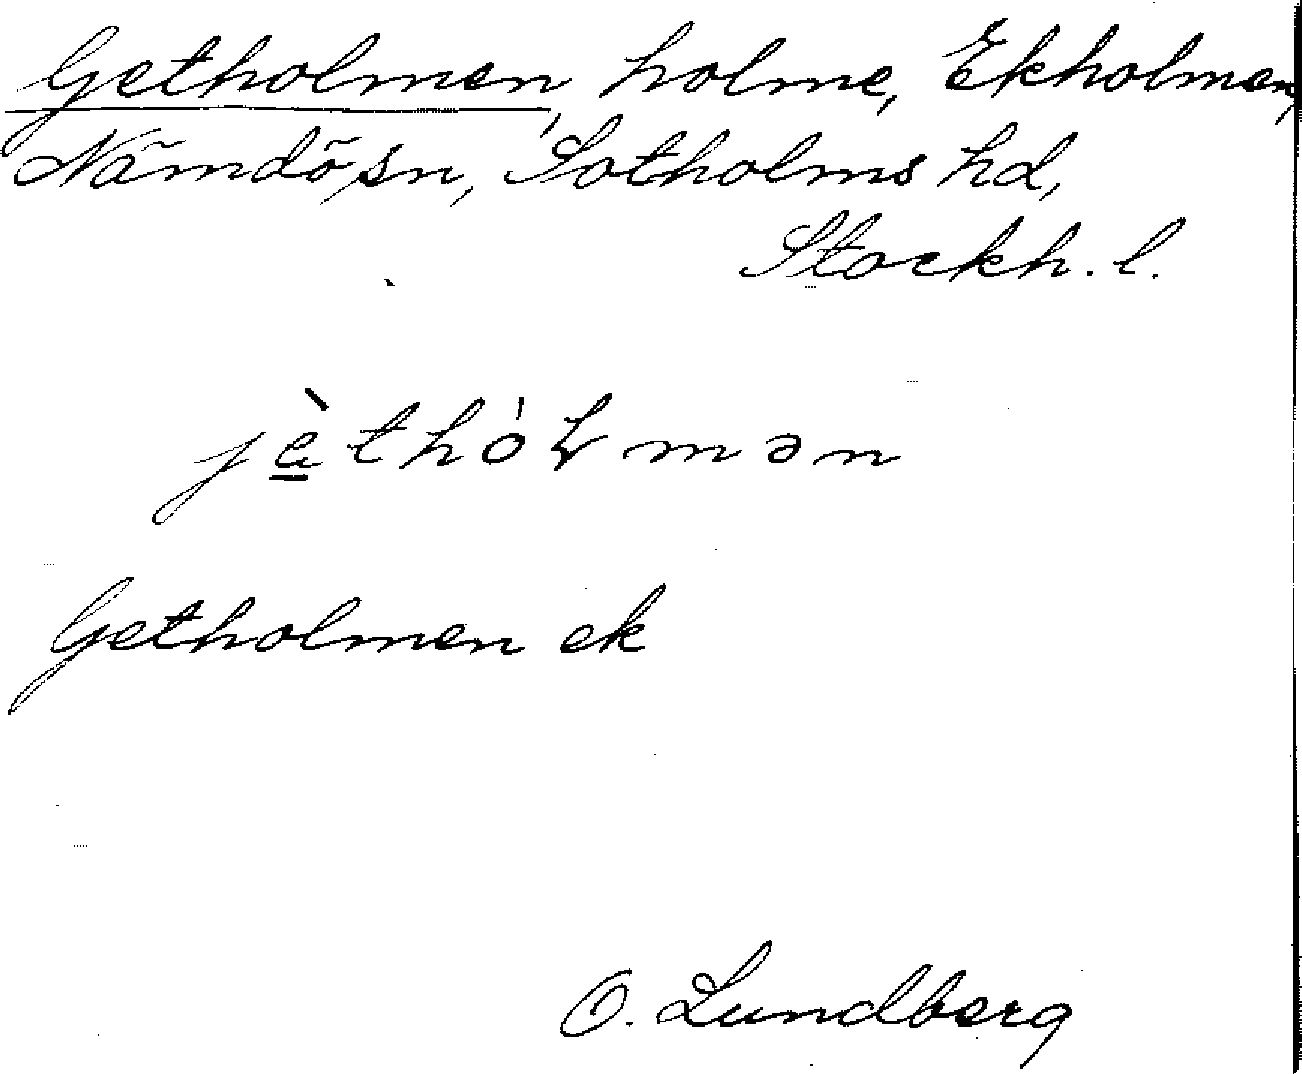 Getholmen, holme, Ekholmen,
Nämdö sn, Sotholms hd,
Stockh. l.
jèthóⱡmən
Getholmen ek
O. Lundberg